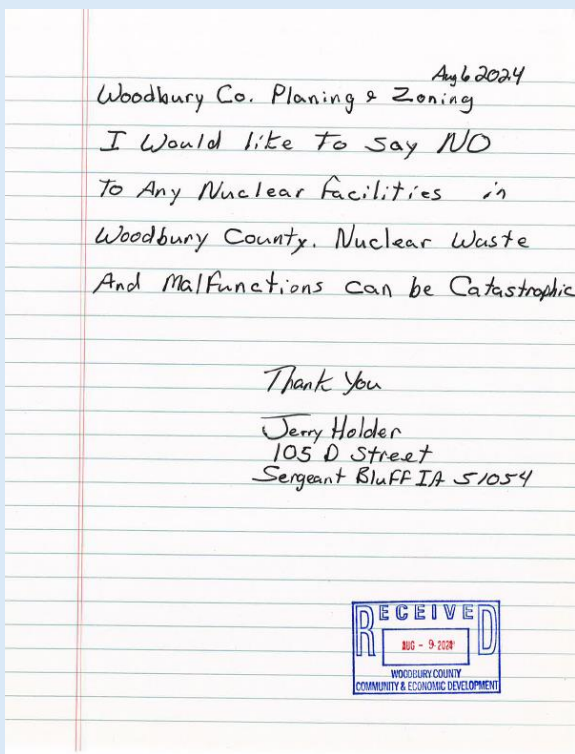 Aug 6 2024
Woodbury Co. Planing & Zoning
I Would like To say NO
To Any Nuclear Facilities in
Woodbury County. Nuclear Waste
And Malfunctions can be Catastrophic
Thank You
Jerry Holder
105 D Street
Sergeant Bluff IA 51054
RECEIVED
AUG - 9 2024
WOODBURY COUNTY
COMMUNITY & ECONOMIC DEVELOPMENT